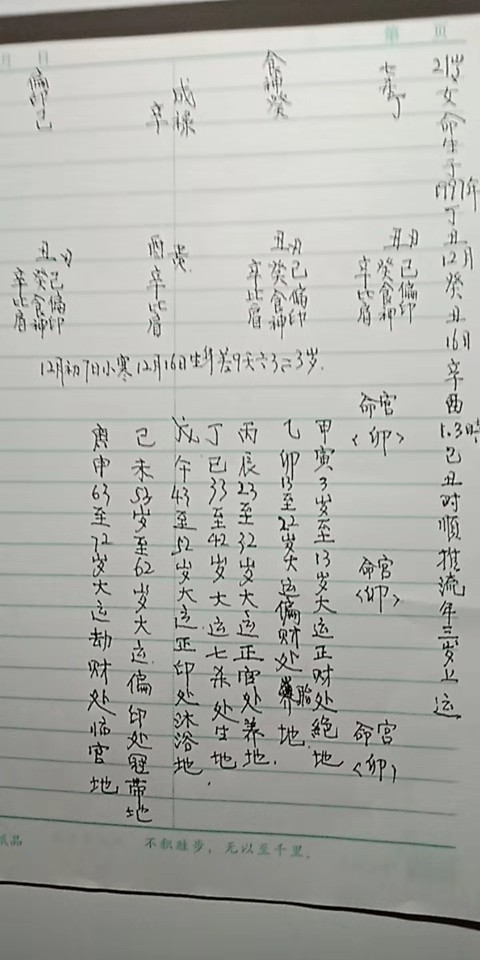 第 页
月 日
21岁女命生于1997年丁丑12月癸丑16日辛酉1.3時己丑时順推流年三岁上运
七杀丁
食神癸
戌禄辛
偏印己
丑月
己偏印
癸食神
辛比肩
丑月
己偏印
癸食神
辛比肩
酉
辛比肩
丑月
己偏印
癸食神
辛比肩
12月初7日小寒12月16日生
命宫<卯>
命宫<卯>
命宫<卯>
甲寅3岁至13岁大运正财处絕地
乙卯13至22岁大运偏财处胎地.
丙辰23至32岁大运正官处养地.
丁巳33至42岁大运七杀处生地.
戊午43至52岁大运正印处沐浴地
己未53岁至62岁大运偏印处冠带地
庚申63至72岁大运劫财处临官地
不积跬步，无以至千里。
纸品